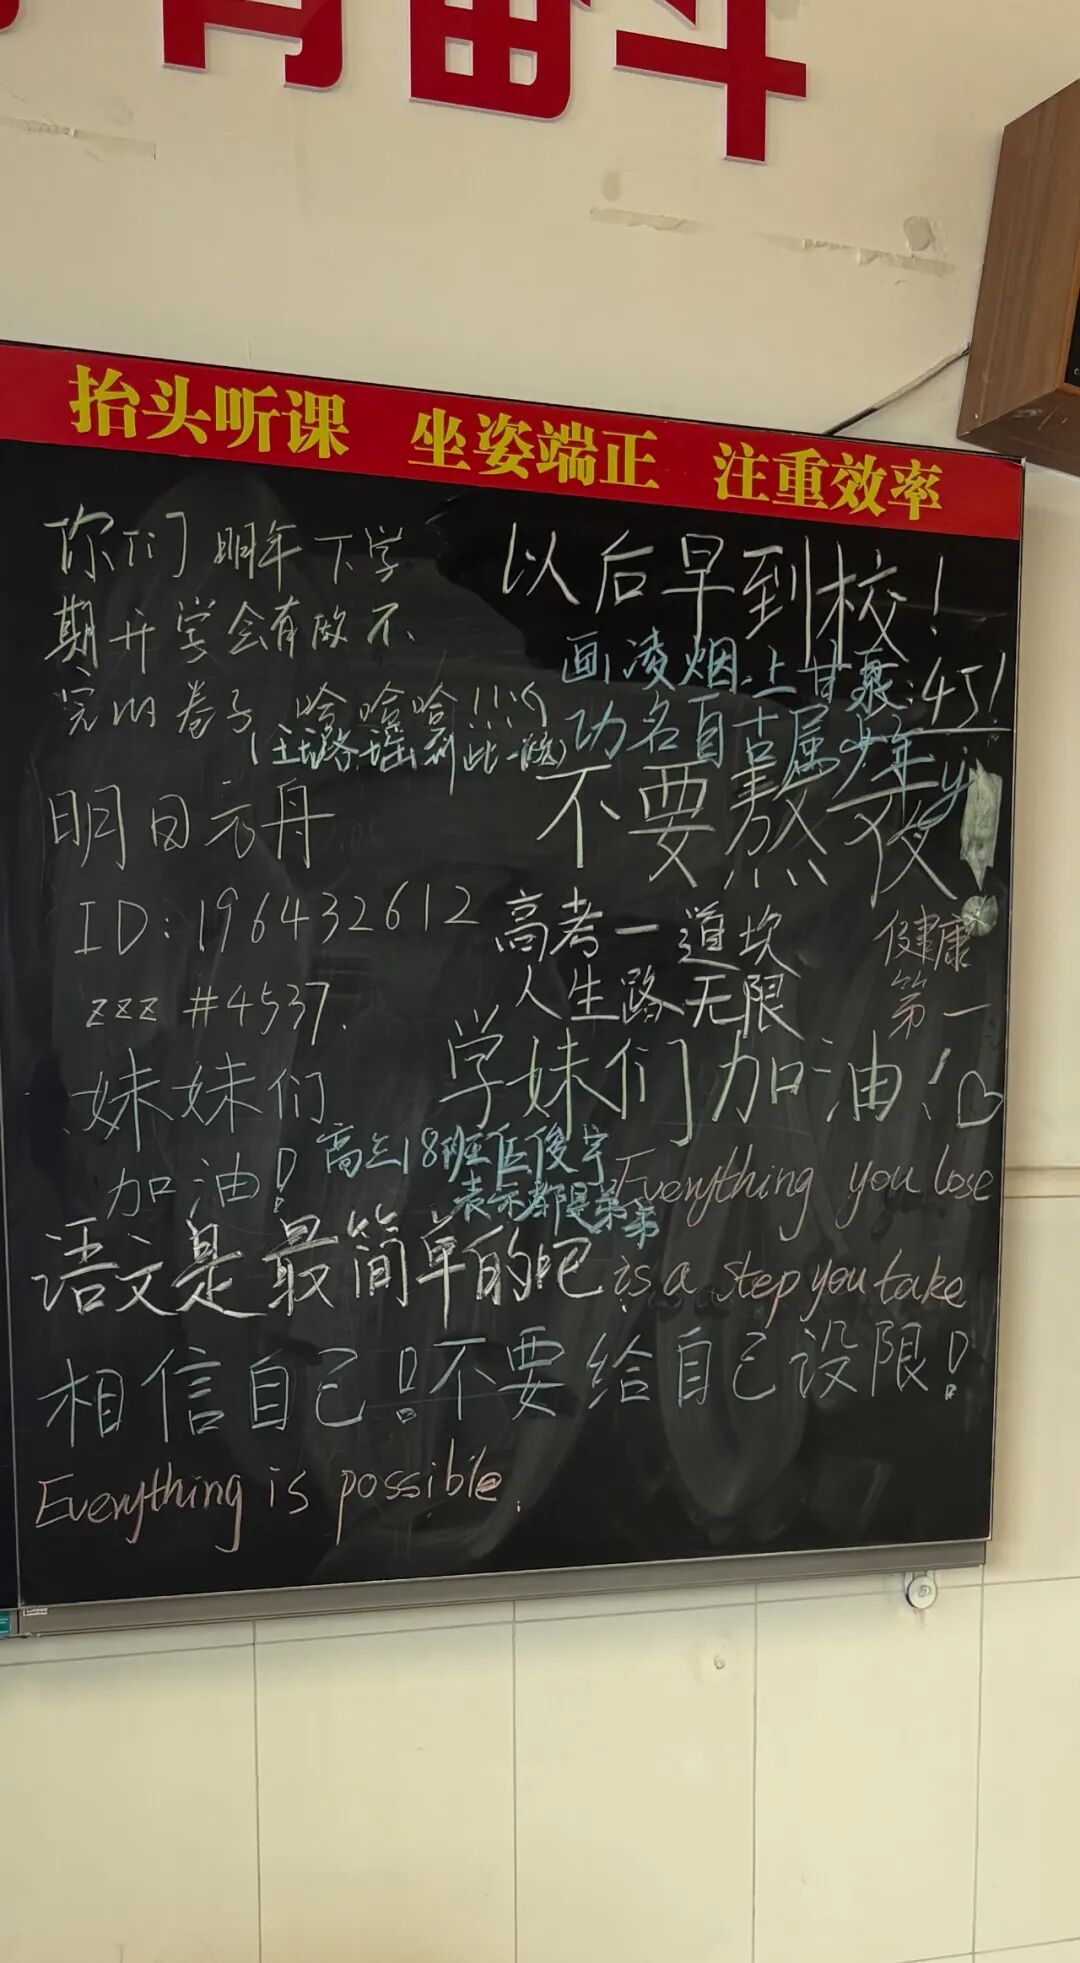 奋斗
抬头听课 坐姿端正 注重效率
你们明年下学
期开学会有做不
完的卷子哈哈哈!!!
明日方舟
ID:196432612
zzz #4537.
妹妹们
加油!
以后早到校!
画凌烟,上甘泉
功名自古属少年
不要熬夜!
高考一道坎
人生路无限
健康
第一
学妹们加油!♡
高三18班伍俊宇
表示都是弟弟
Everything you lose
is a step you take
语文是最简单的吧
相信自己!不要给自己设限!
Everything is possible.